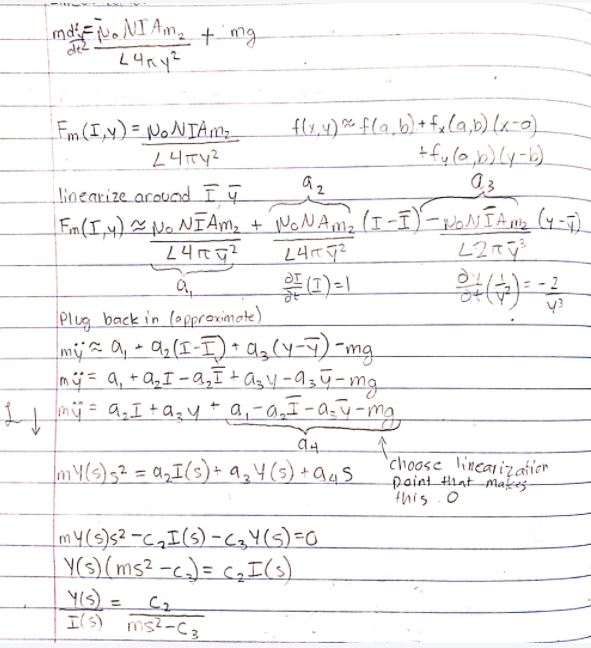 md²y/dt² = μ₀NIAm₂/L4πy² + mg
Fₘ(I,y) = μ₀NIAm₂/L4πy²
f(x,y) ≈ f(a,b) + fₓ(a,b)(x-a)
+ fᵧ(a,b)(y-b)
linearize around Ī ȳ
a₂ a₃
Fₘ(I,y) ≈ μ₀NĪAm₂/L4πȳ² + μ₀NAm₂/L4πȳ² (I-Ī) - μ₀NĪAm₂/L2πȳ³ (y-ȳ)
a₁ ∂I/∂t (I) = 1 ∂y/∂t (1/y²) = -2/y³
Plug back in (approximate)
mÿ ≈ a₁ + a₂(I-Ī) + a₃(y-ȳ) - mg
mÿ = a₁ + a₂I - a₂Ī + a₃y - a₃ȳ - mg
ℒ ↓ mÿ = a₂I + a₃y + a₁ - a₂Ī - a₃ȳ - mg
a₄
mY(s)s² = a₂I(s) + a₃Y(s) + a₄s
choose linearization
point that makes
this 0
mY(s)s² - c₂I(s) - c₃Y(s) = 0
Y(s)(ms² - c₃) = c₂I(s)
Y(s)/I(s) = c₂/ms² - c₃